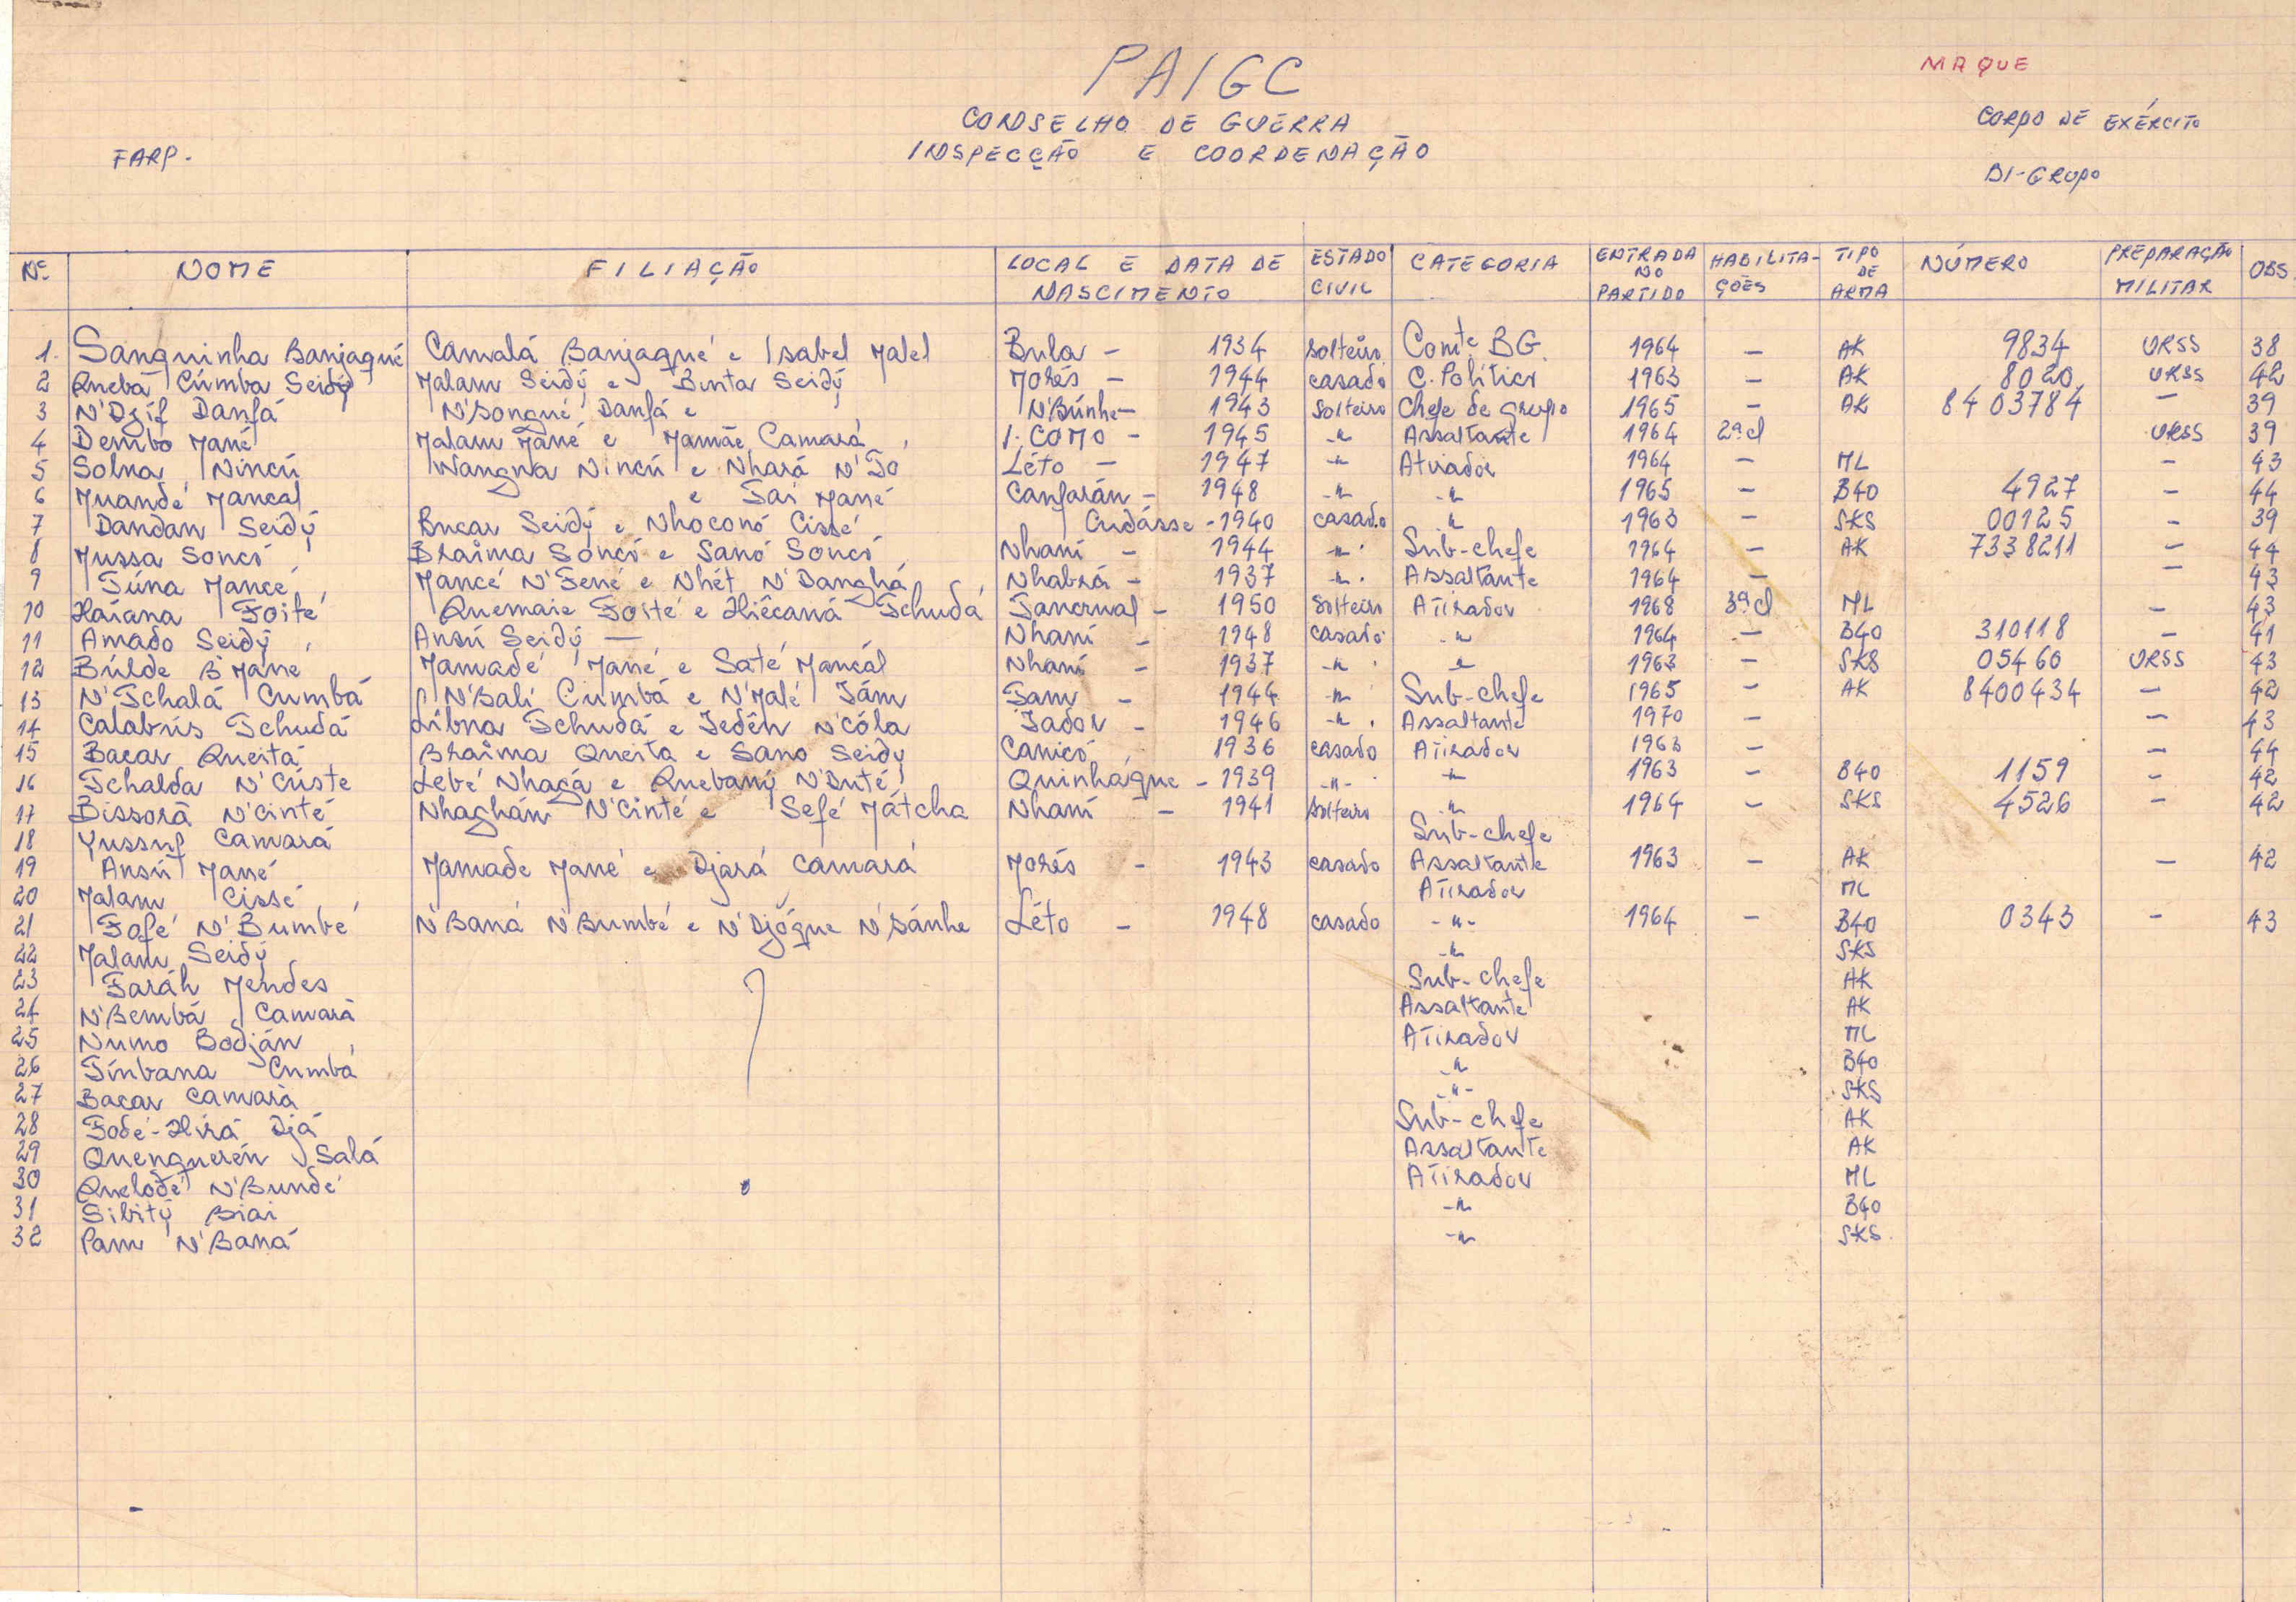 PAIGC
MAQUE
CONSELHO DE GUERRA
CORPO DE EXÉRCITO
FARP.
INSPECÇÃO E COORDENAÇÃO
BI-GRUPO
Nº. NOME FILIAÇÃO LOCAL E DATA DE NASCIMENTO ESTADO CIVIL CATEGORIA ENTRADA NO PARTIDO HABILITAÇÕES TIPO DE ARMA NÚMERO PREPARAÇÃO MILITAR OBS
1. Sanguinha Banjaqué Camalá Banjaqué e Isabel Malel Bula - 1934 solteiro Comte. BG. 1964 - AK 9834 URSS 38
2 Quebá Cúmba Seidÿ Malam Seidÿ e Binta Seidÿ Morés - 1944 casado C. Político 1963 - AK 8020 URSS 42
3 N'Dzif Danfá N'Songué Danfá e N'Búnhe - 1943 Solteiro Chefe de grupo 1965 - AK 8403784 - 39
4 Dembo Mané Malam Mané e Mamãe Camará I. COMO - 1945 -"- Assaltante 1964 2ªcl URSS 39
5 Solna Nincú Wangna Nincú e Nhará N'To Léto - 1947 -"- Atirador 1964 - ML - 43
6 Muandé Mancal e Tai Mané Canfarán - 1948 -"- -"- 1965 - B40 4927 - 44
7 Dandan Seidÿ Bucar Seidÿ e Nhoconó Cissé Cudásse - 1940 casado " 1963 - SKS 00125 - 39
8 Mussa Soncó Braima Soncó e Sanó Soncó Nhaní - 1944 -"- Sub-chefe 1964 - AK 7338211 - 44
9 Túna Mancé Mancé N'Fené e Nhét N'Danghá Nhabrá - 1937 -"- Assaltante 1964 - - 43
10 Haiana Foité Quemaie Foité e Hiêcaná Tchudá Fancrual - 1950 Solteiro Atirador 1968 3ªcl ML - 43
11 Amado Seidÿ Ansú Seidÿ - Nhaní - 1948 casado -"- 1964 - B40 310118 - 41
12 Búlde B'Mane Mamadé Mané e Saté Mancál Nhaní - 1937 -"- -"- 1963 - SKS 05460 URSS 43
13 N'Tchalá Cumbá N'Bali Cumbá e N'Malé Tám Tam - 1944 -"- Sub-chefe 1965 - AK 8400434 - 42
14 Calabrís Tchudá Libna Tchudá e Jedên N'cóla Jador - 1946 -"- Assaltante 1970 - - 43
15 Bacar Queitá Braima Queita e Sano Seidÿ Canicó 1936 casado Atirador 1963 - - 44
16 Tchalda N'Cúste Lebé Nhagá e Quebanÿ N'Duté Quinháque - 1939 -"- -"- 1963 - B40 1159 - 42
17 Bissorã N'cinté Nhaghám N'Cinté e Sefé Mátcha Nhaní - 1941 Solteiro -"- 1964 - SKS 4526 - 42
18 Yussuf Camará Sub-chefe
19 Ansú Mané Mamade Mané e Djará Camará Morés - 1943 casado Assaltante 1963 - AK - 42
20 Malam Cissé Atirador ML
21 Fofé N'Bumbé N'Baná N'Bumbé e N'Djógue N'Sánhe Léto - 1948 casado -"- 1964 - B40 0343 - 43
22 Malam Seidÿ -"- SKS
23 Faráh Mendes Sub-chefe AK
24 N'Bembá Camará Assaltante AK
25 Numo Bodján Atirador ML
26 Tínbana Cumbá -"- B40
27 Bacar Camará -"- SKS
28 Fodé-Hirá Djá Sub-chefe AK
29 Quenquerén Salá Assaltante AK
30 Quelodé N'Bundé Atirador ML
31 Sibitÿ Biai -"- B40
32 Pam N'Baná -"- SKS